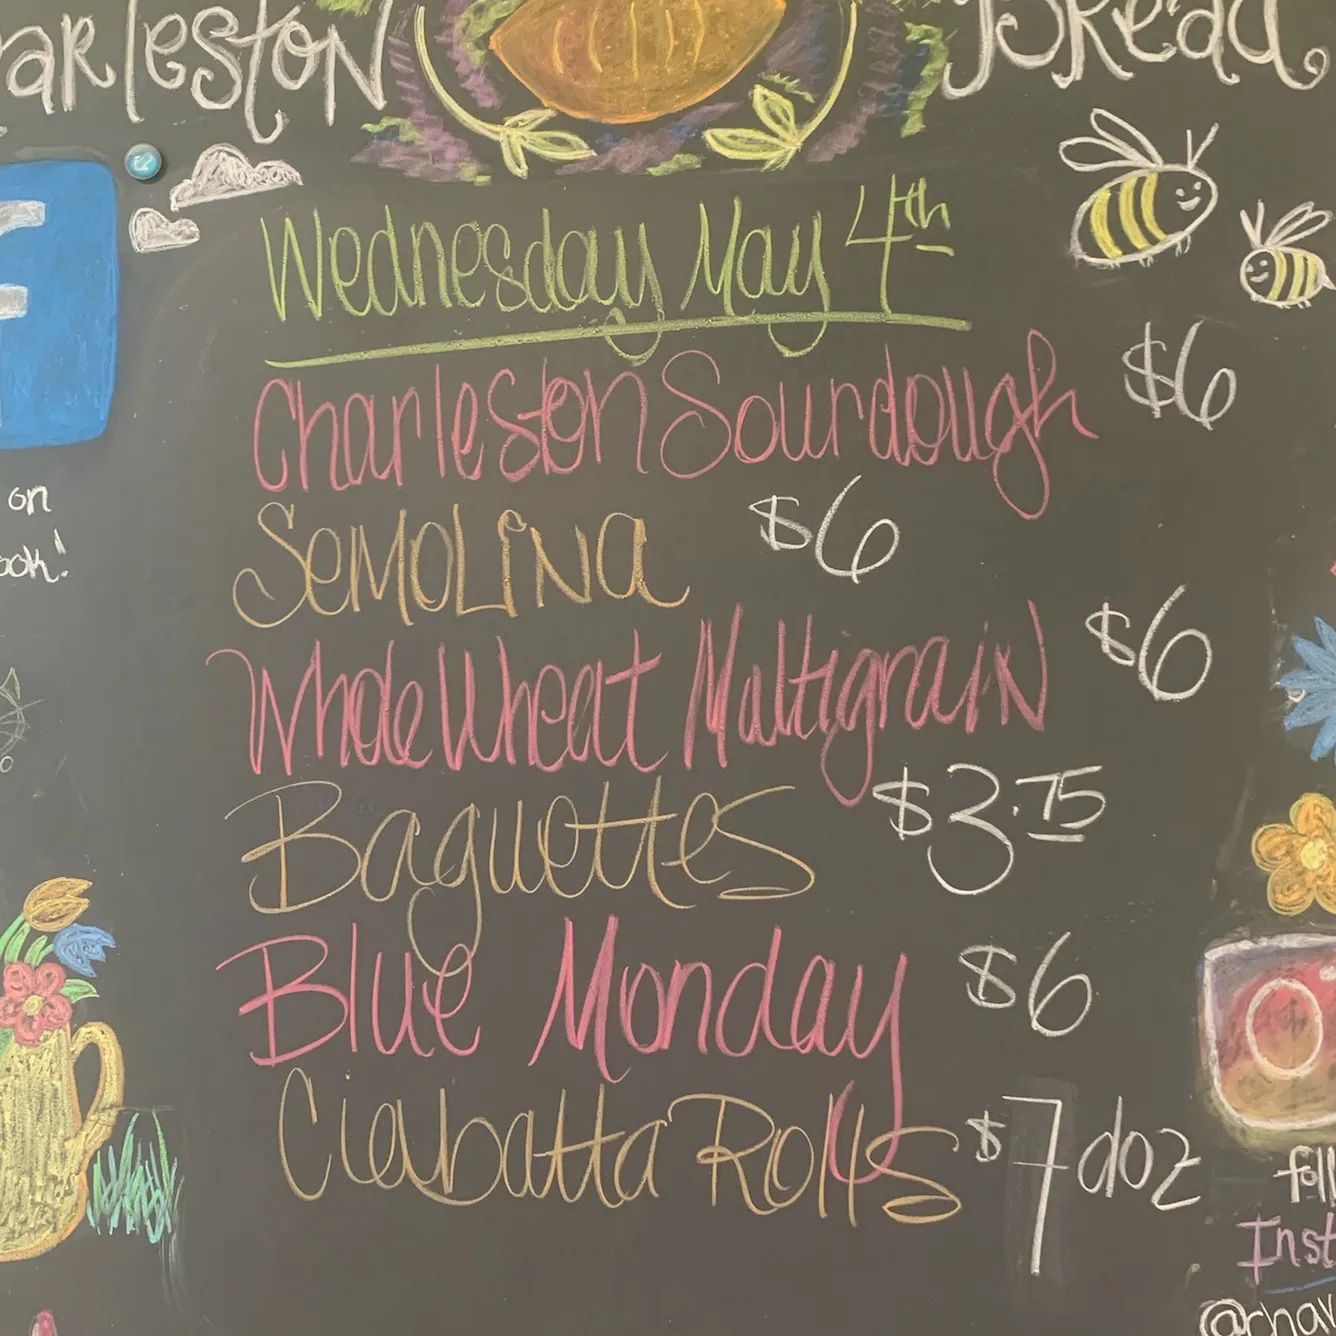 arleston Bread
Wednesday May 4th
Charleston Sourdough $6
Semolina $6
Whole Wheat Multigrain $6
Baguettes $3.75
Blue Monday $6
Ciabatta Rolls $7 doz
f
on
ook!
foll
Inst
@char